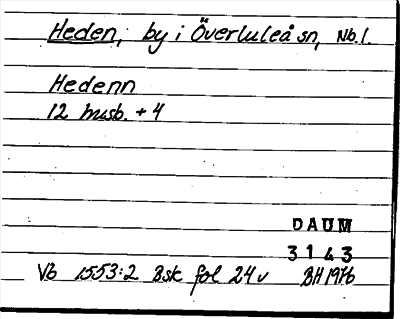 Heden, by i Överluleå sn, Nb.l.
Hedenn
12 husb. + 4
DAUM
3143
Vb 1553:2 Bsk fol 24v BH 1976